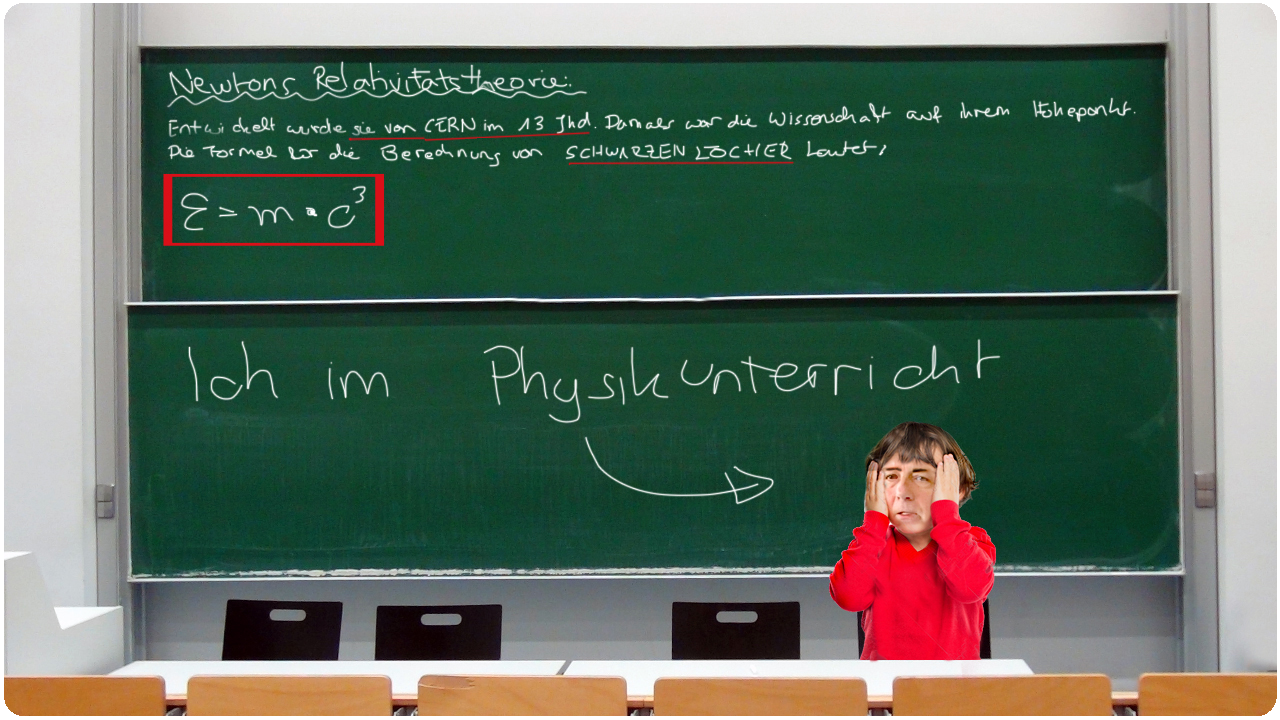 Newtons Relativitätstheorie:
Entwickelt wurde sie von CERN im 13 Jhd. Damals war die Wissenschaft auf ihrem Höhepunkt.
Die Formel für die Berechnung von SCHWARZEN LÖCHER Lautet:
E = m · c³
Ich im Physikunterricht